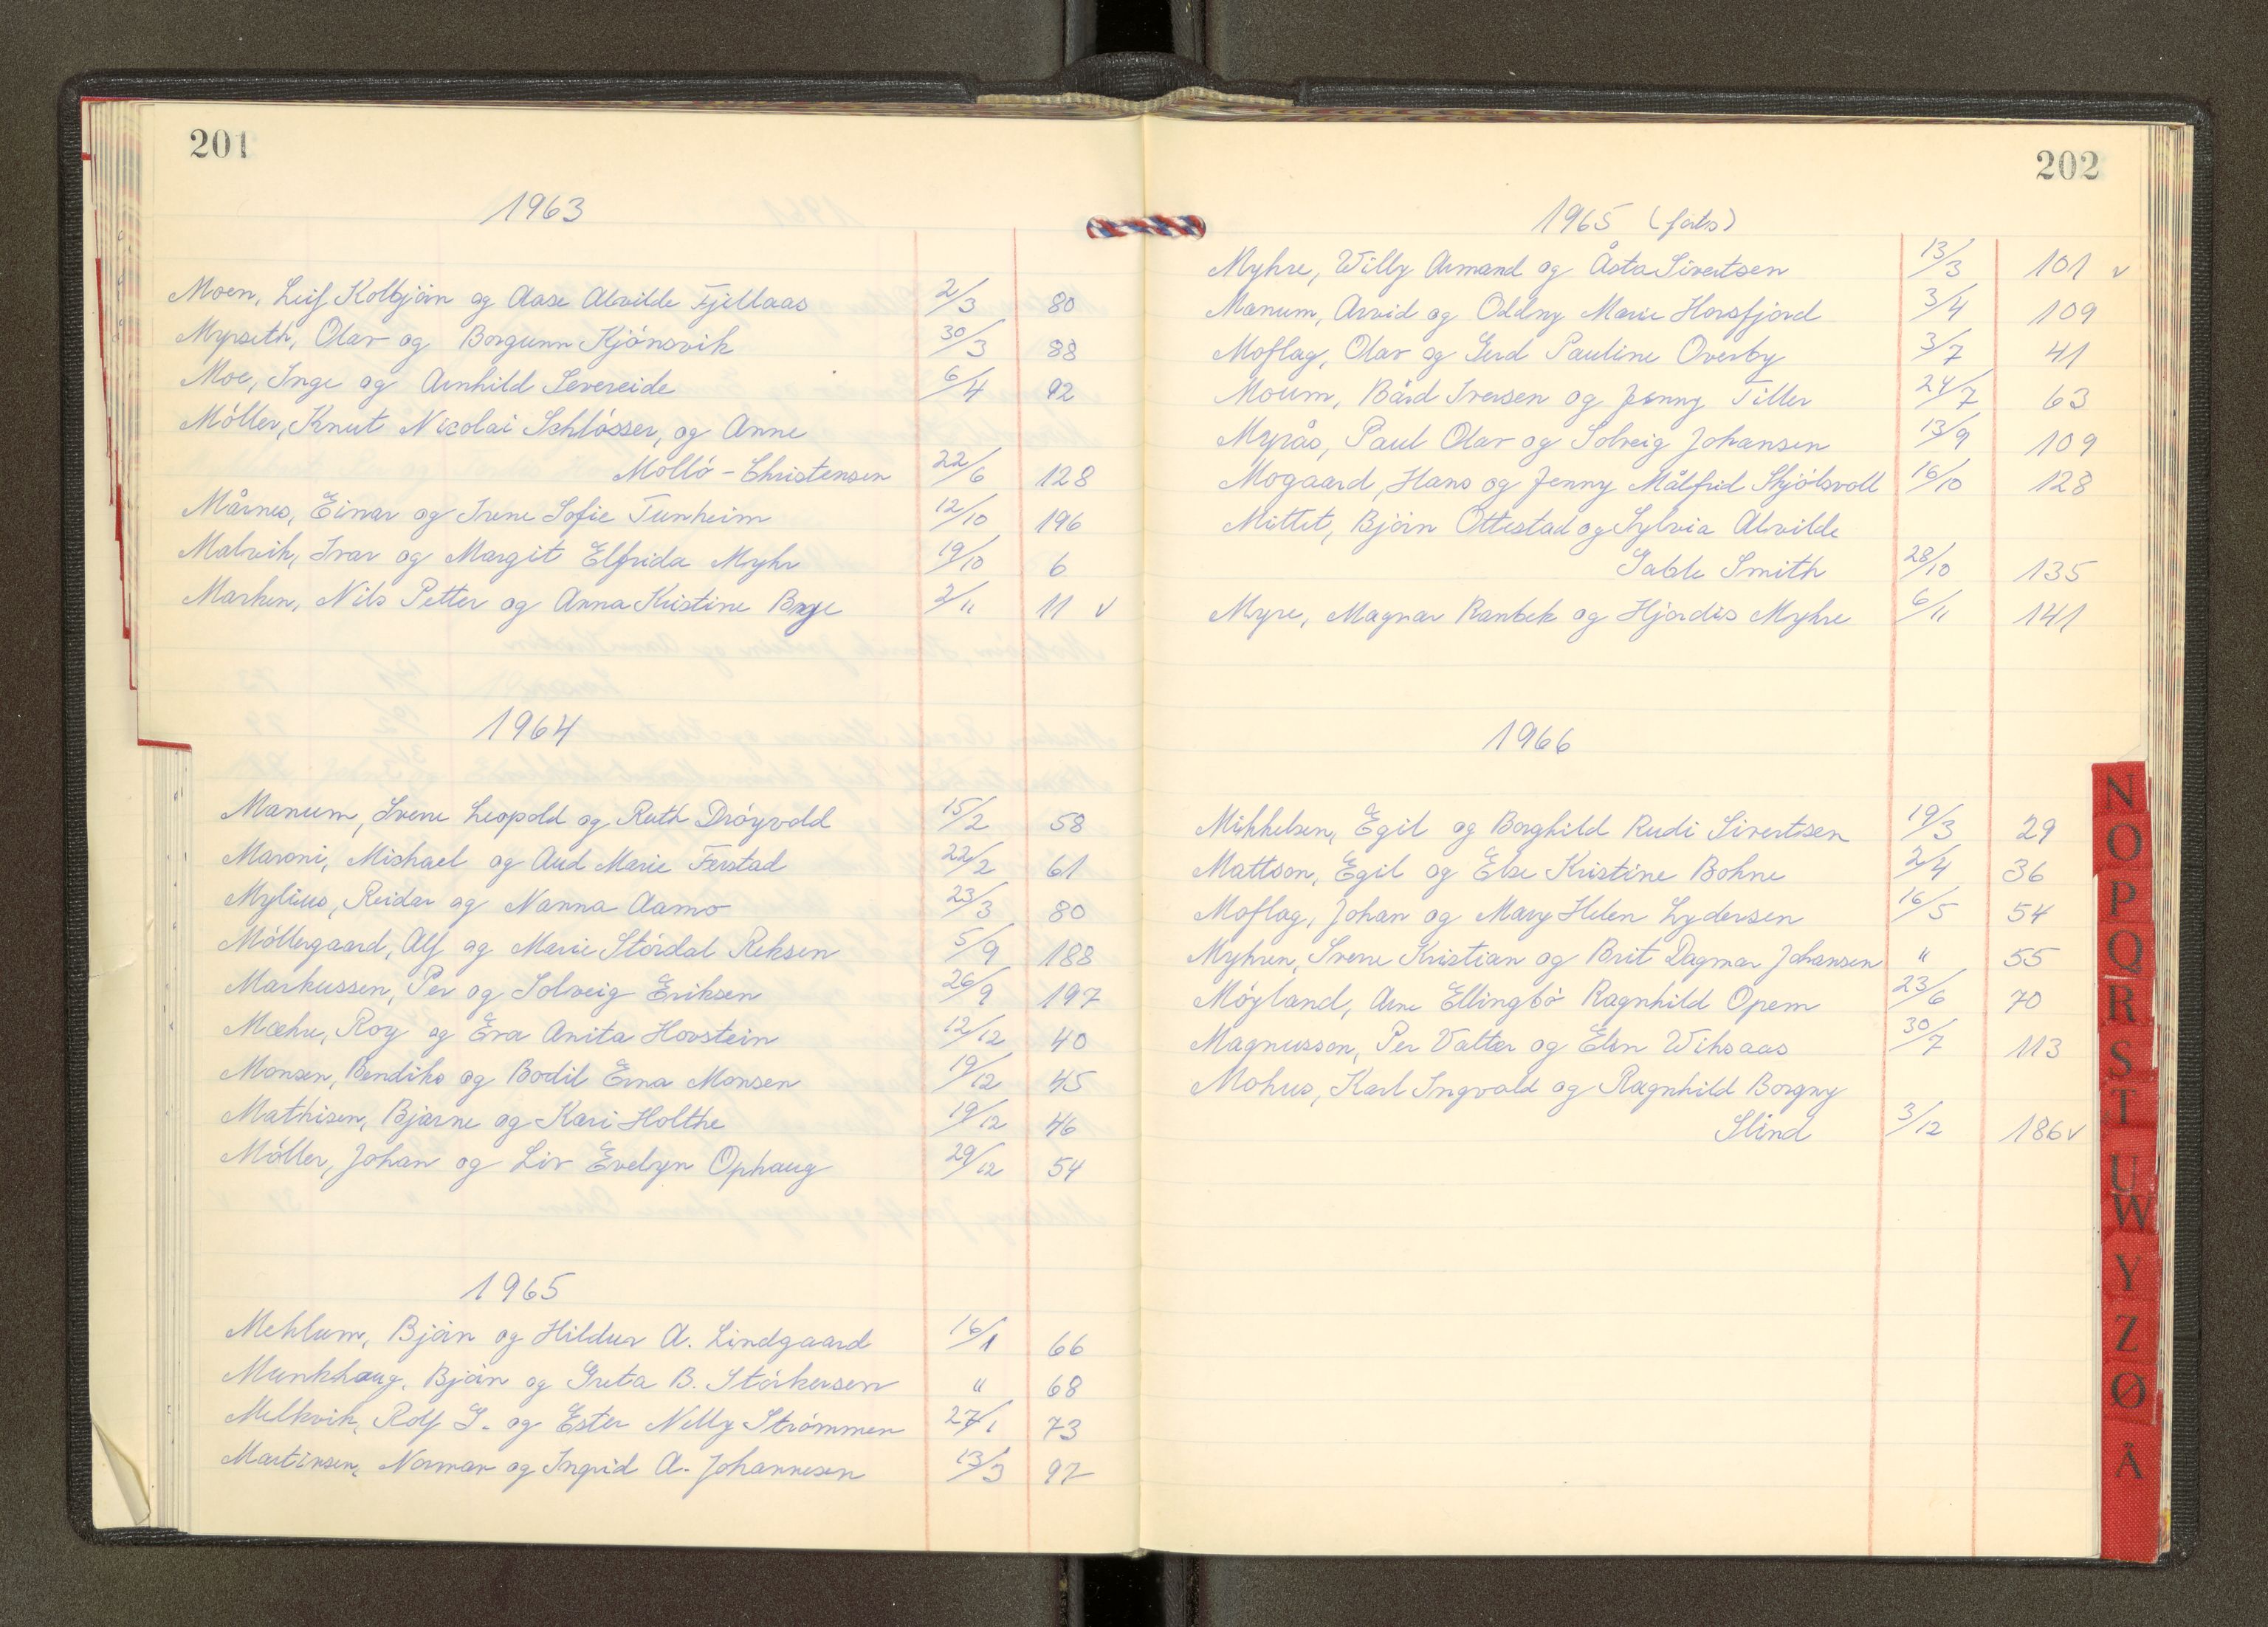 201
1963
Moen, Leif Kolbjörn og Aase Alvilde Fjellaas 2/3 80
Myrseth, Olav og Borgunn Kjönsvik 30/3 88
Moe, Inge og Arnhild Severeide 6/4 92
Möller, Knut Nicolai Schlösser, og Anne
Mollö-Christensen 22/6 128
Mårnes, Einar og Irene Sofie Tunheim 12/10 196
Malvik, Ivar og Margit Elfrida Myhr 19/10 6
Marken, Nils Petter og Anna Kristine Brye 2/11 11 v
1964
Manum, Sverre Leopold og Ruth Dröyvold 15/2 58
Maroni, Michael og Aud Marie Ferstad 22/2 61
Mylius, Reidar og Nanna Aamo 23/3 80
Möllergaard, Alf og Marie Stördal Reksen 5/9 188
Markussen, Per og Solveig Eriksen 26/9 197
Mæhre, Roy og Eva Anita Hovstein 12/12 40
Monsen, Bendiks og Bodil Erna Monsen 19/12 45
Mathisen, Bjarne og Kari Holthe 19/12 46
Möller, Johan og Liv Evelyn Ophaug 29/12 54
1965
Mehlum, Björn og Hildur A. Lindgaard 16/1 66
Munkhaug, Björn og Greta B. Störkersen " 68
Melkvik, Rolf G. og Ester Nelly Strömmen 27/1 73
Martinsen, Normar og Ingrid A. Johannesen 13/3 97
202
1965 (forts)
Myhre, Willy Armand og Åsta Sivertsen 13/3 101 v
Manum, Arvid og Oddny Marie Horsfjord 3/4 109
Moflag, Olav og Gerd Pauline Overby 3/7 41
Moum, Bård Iversen og Jenny Tiller 24/7 63
Myrås, Paul Olav og Solveig Johansen 13/9 109
Mogaard, Hans og Jenny Målfrid Skjölsvoll 16/10 128
Mittet, Björn Ottestad og Sylvia Alvilde
Gable Smith 28/10 135
Myre, Magnar Ranbek og Hjördis Myhre 6/11 141
1966
Mikkelsen, Egil og Borghild Rudi Sivertsen 19/3 29
Mattson, Egil og Else Kristine Bohne 2/4 36
Moflag, Johan og Mary Helen Lydersen 16/5 54
Myhren, Sverre Kristian og Brit Dagmar Johansen " 55
Möyland, Arne Ellingbö Ragnhild Opem 23/6 70
Magnusson, Per Valter og Elin Wiksaas 30/7 113
Mohus, Karl Ingvald og Ragnhild Borgny
Slind 3/12 186 v
N
O
P
Q
R
S
T
U
W
Y
Z
Ø
Å